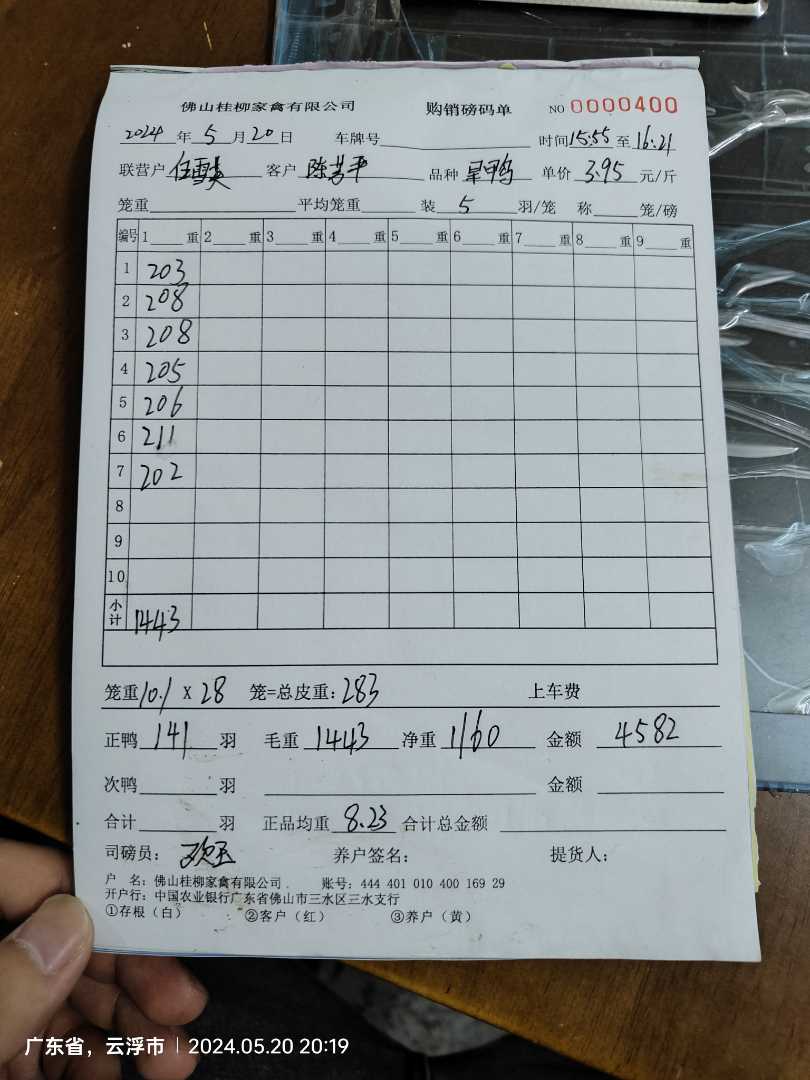 佛山桂柳家禽有限公司 购销磅码单 NO 0000400
2024年5月20日 车牌号 时间15:55至16:21
联营户 客户 陈芳平 品种 旱鸭 单价 3.95 元/斤
笼重 平均笼重 装 5 羽/笼 称 笼/磅
编号 1 重 2 重 3 重 4 重 5 重 6 重 7 重 8 重 9 重
1 203
2 208
3 208
4 205
5 206
6 211
7 202
8
9
10
小计 1443
笼重10.1 X 28 笼=总皮重:283 上车费
正鸭 141 羽 毛重 1443 净重 1160 金额 4582
次鸭 羽 金额
合计 羽 正品均重 8.23 合计总金额
司磅员: 养户签名: 提货人:
户 名:佛山桂柳家禽有限公司. 账号:444 401 010 400 169 29
开户行:中国农业银行广东省佛山市三水区三水支行
①存根(白) ②客户(红) ③养户(黄)
广东省，云浮市 | 2024.05.20 20:19